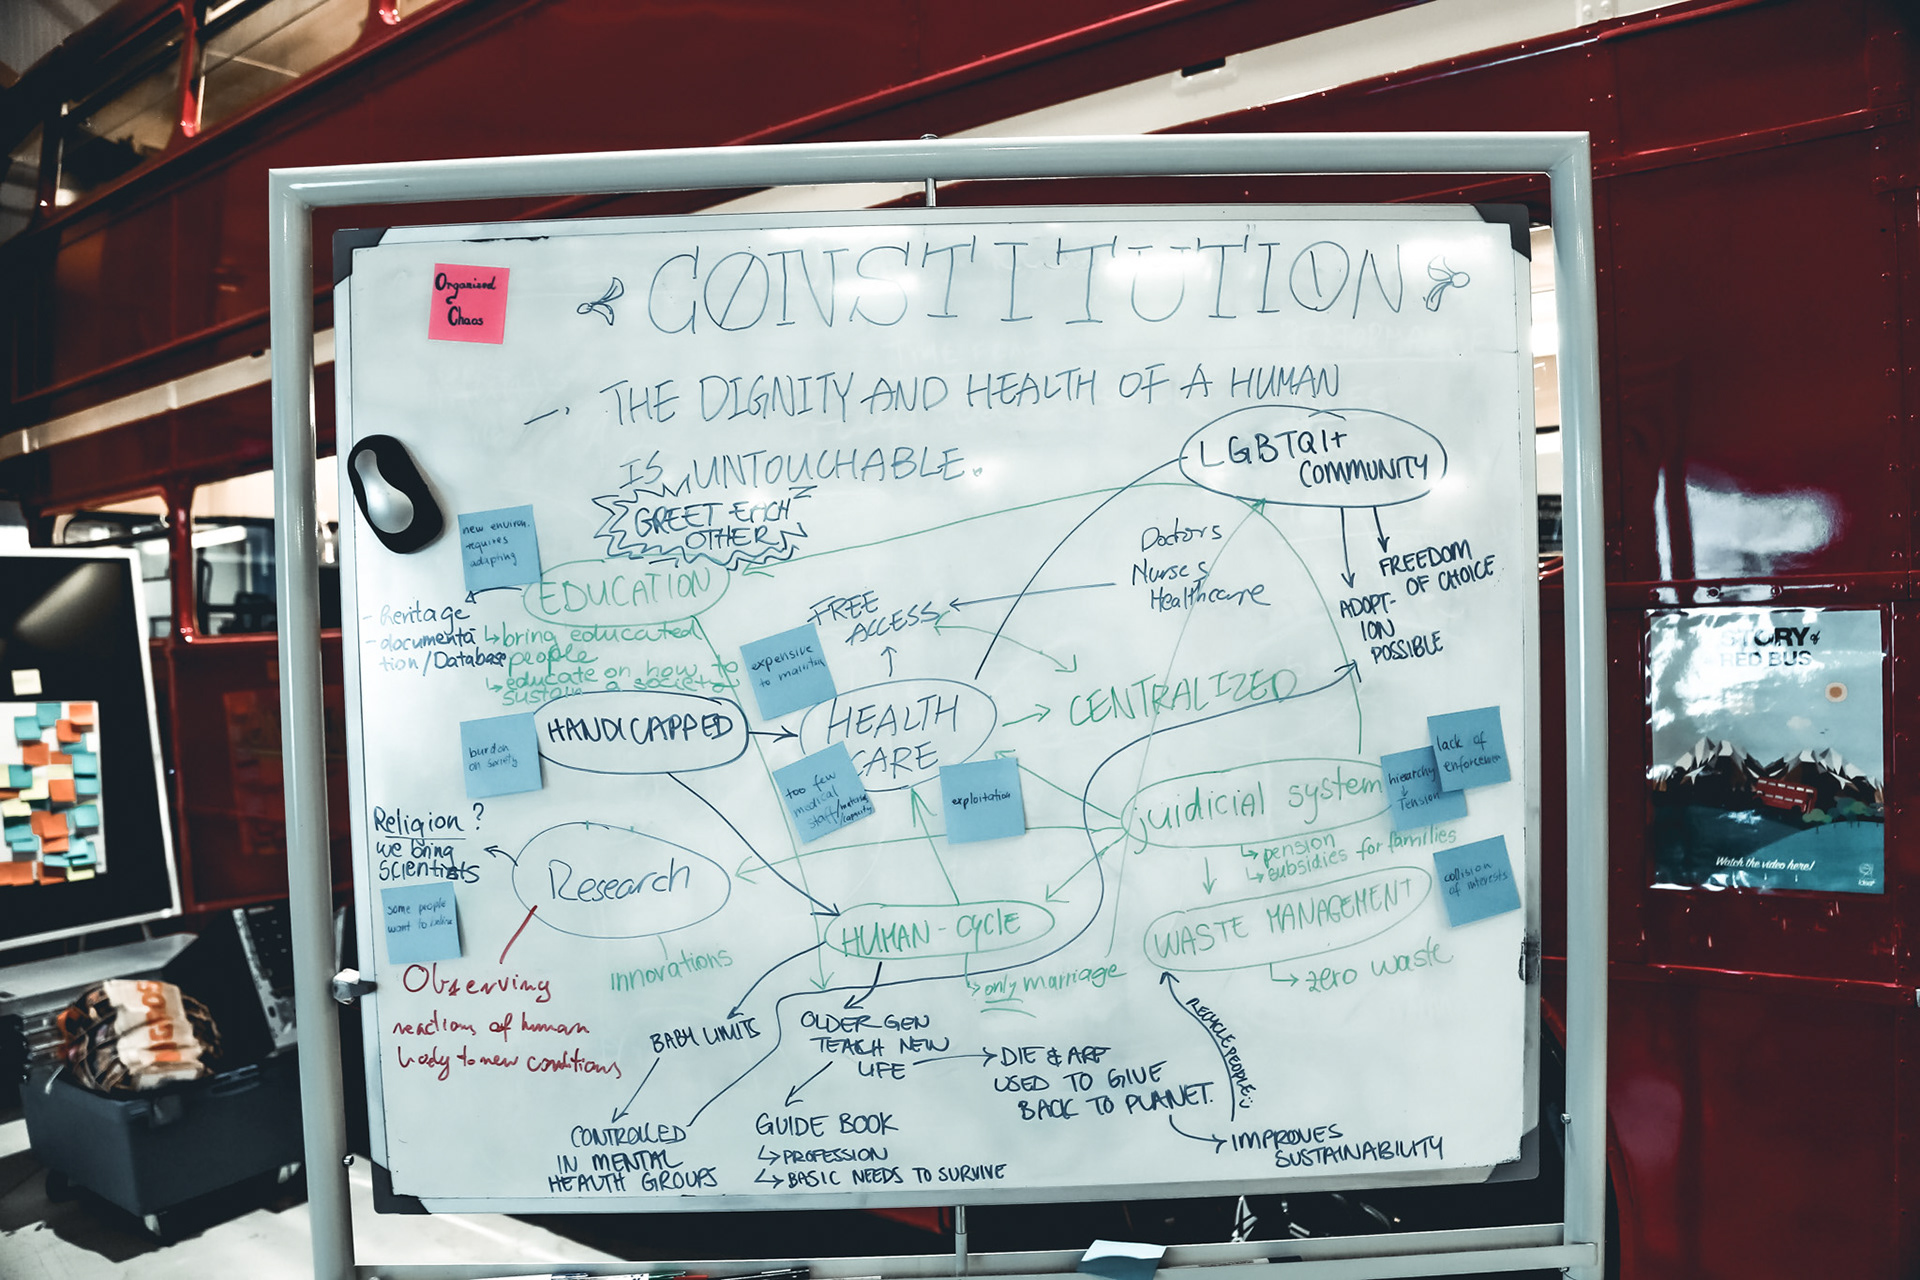 Organised
&
Chaos
CONSTITUTION
THE DIGNITY AND HEALTH OF A HUMAN
IS UNTOUCHABLE.
GREET EACH
OTHER
LGBTQI+
COMMUNITY
FREEDOM
OF CHOICE
ADOPT-
ION
POSSIBLE
Doctors
Nurses
Healthcare
new environ.
requires
adapting
EDUCATION
- heritage
- documenta
tion/Database
↳ bring educated
people
↳ educate on how to
sustain a society
FREE
ACCESS
expensive
to maintain
CENTRALIZED
HANDICAPPED
HEALTH
CARE
burden
on society
too few
medical
staff/material
/capacity
exploitation
juidicial system
hierarchy
↓
Tension
lack of
enforcement
↳ pension
↳ subsidies for families
collision
of interests
Religion?
we bring
scientists
Research
some people
want to
innovations
Observing
reactions of human
body to new conditions
HUMAN-CYCLE
↳ only marriage
WASTE MANAGEMENT
↳ zero waste
BABY LIMITS
OLDER GEN
TEACH NEW
LIFE
DIE & ARE
USED TO GIVE
BACK TO PLANET.
RECYCLE PEOPLE :)
CONTROLLED
IN MENTAL
HEALTH GROUPS
GUIDE BOOK
↳ PROFESSION
↳ BASIC NEEDS TO SURVIVE
IMPROVES
SUSTAINABILITY
STORY of
RED BUS
Watch the video here!